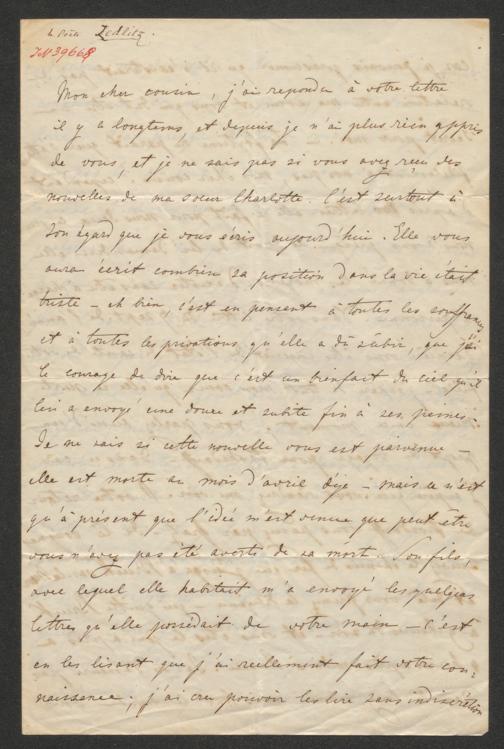 le Poëte Zedlitz.
IN 39668
Mon cher cousin, j'ai repondu à votre lettre
il y a longtems, et depuis je n'ai plus rien appris
de vous, et je ne sais pas si vous avez reçu des
nouvelles de ma soeur Charlotte. C'est surtout à
son égard que je vous écris aujourd'hui. Elle vous
aura écrit combien sa position dans la vie était
triste – eh bien, c'est en pensent à toutes les souffrances
et à toutes les privations qu'elle a dû subir, que j'ai
le courage de dire que c'est un bienfait du ciel qu'il
lui a envoyé une douce et subite fin à ses peines.
Je ne sais si cette nouvelle vous est parvenue –
elle est morte au mois d'avril déjè – mais ce n'est
qu'à présent que l'idée m'est venue que peut être
vous n'avez pas été averti de sa mort. Son fils,
avec lequel elle habitait m'a envoyé les quelques
lettres qu'elle possédait de votre main – c'est
en les lisant que j'ai reellement fait votre con=
naissance; j'ai cru pouvoir les lire sans indiscrétion